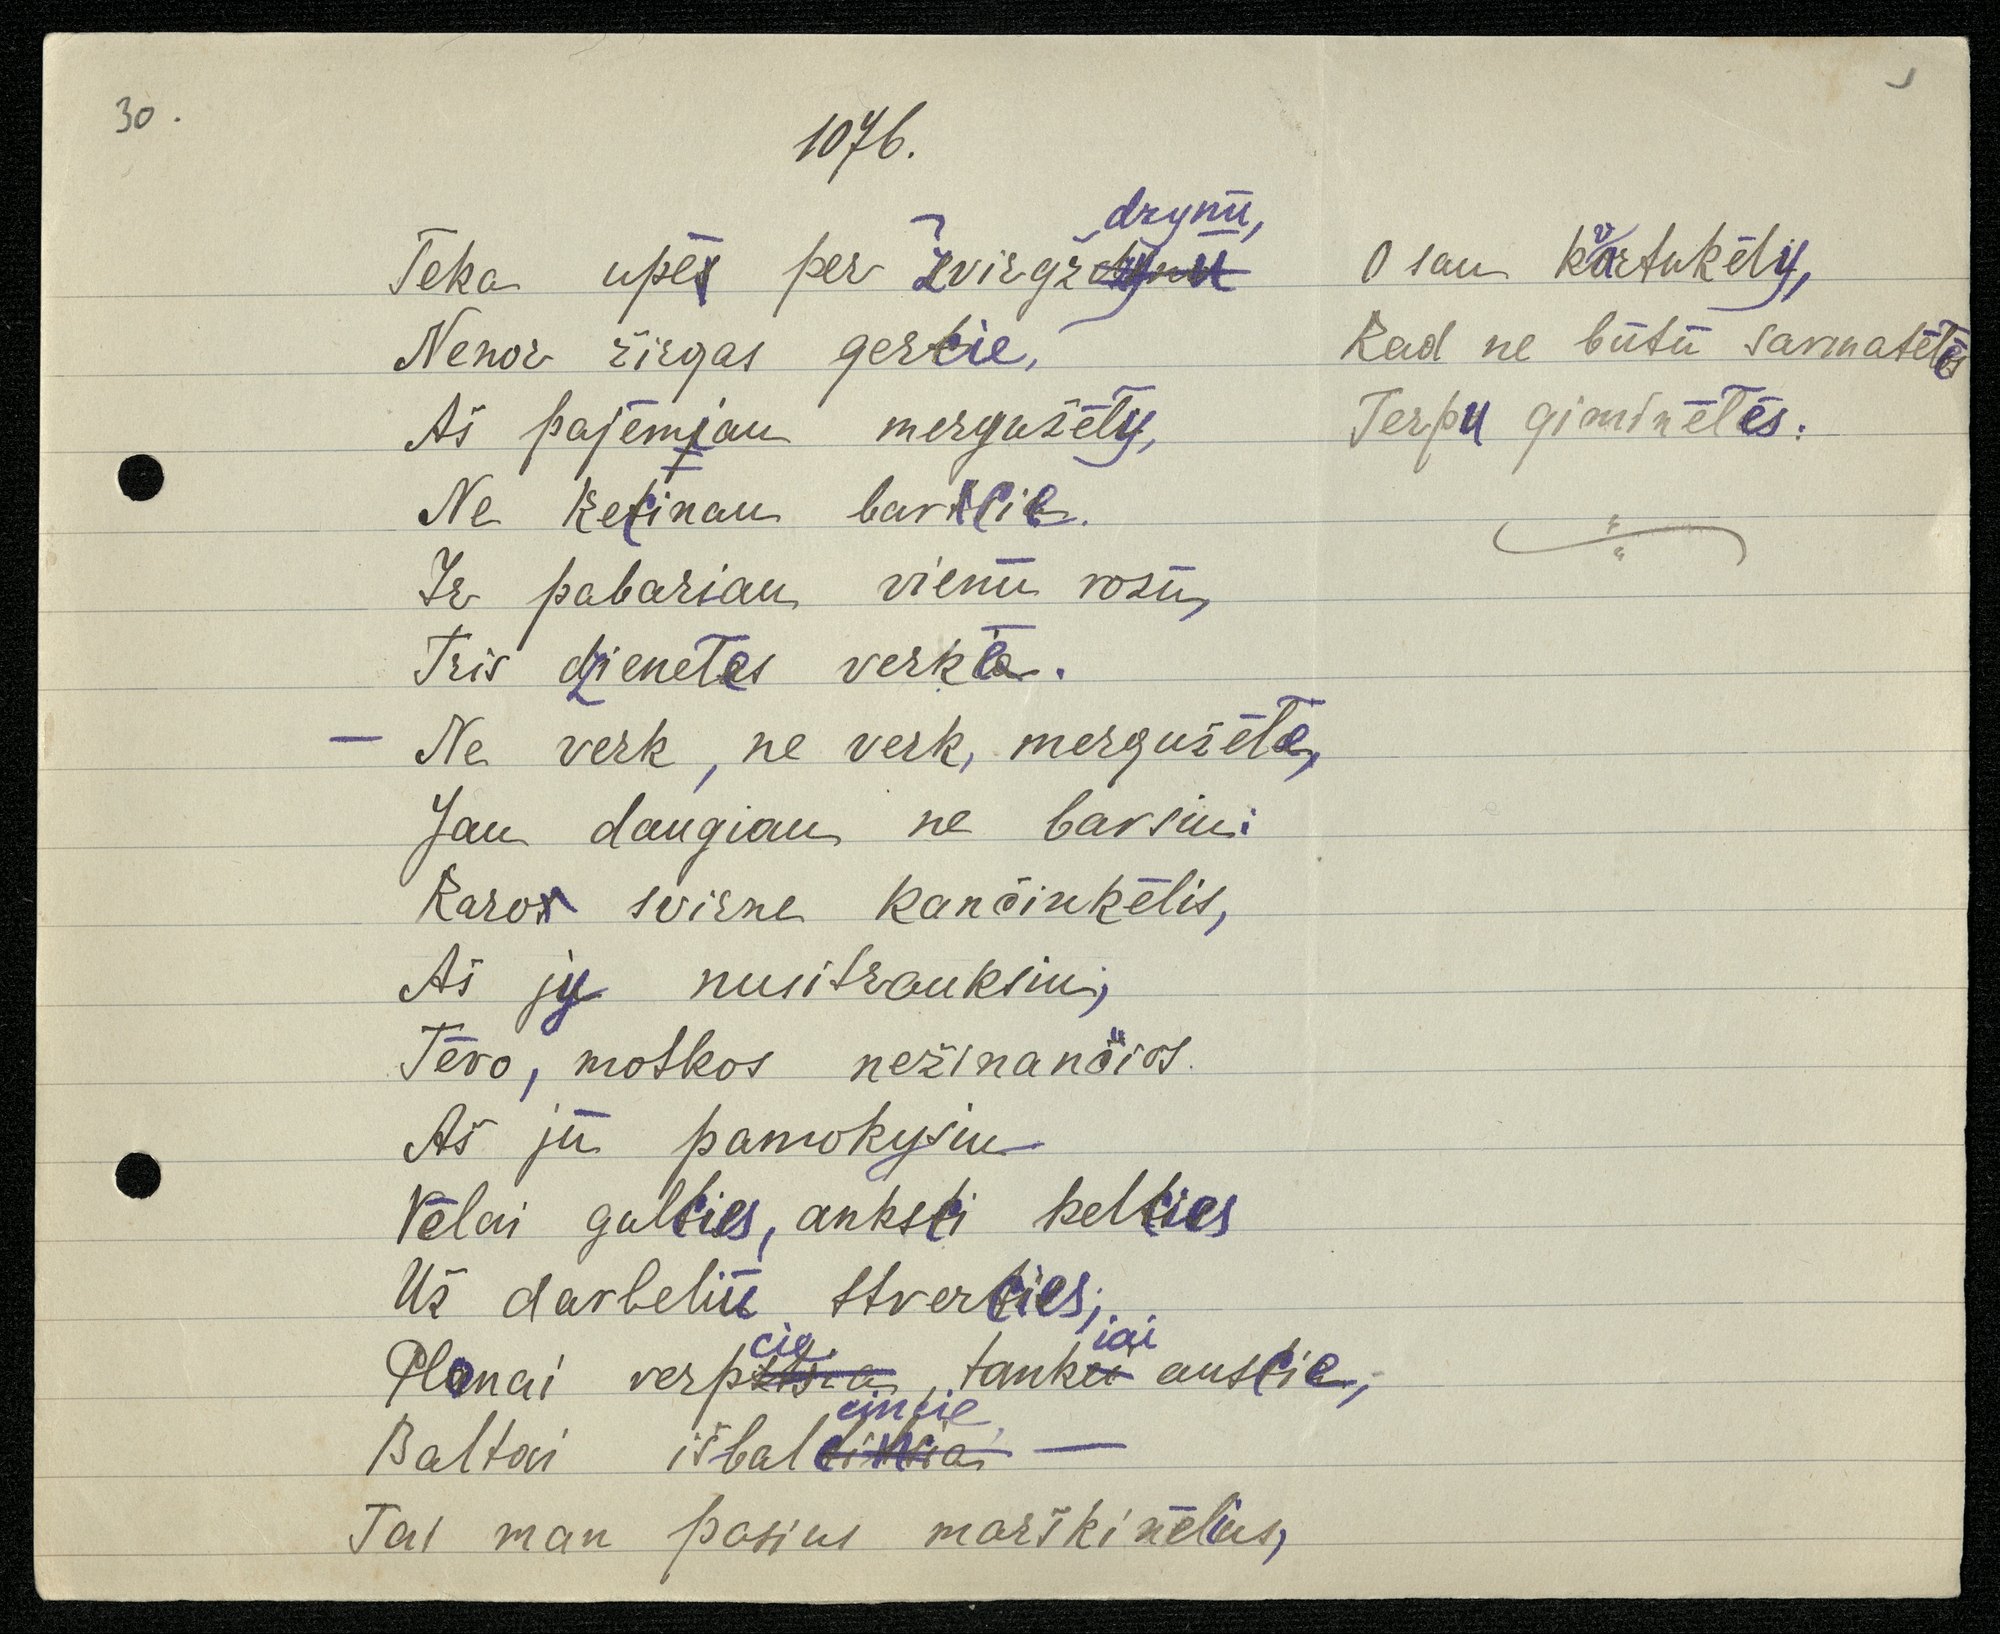 30.
1076.
Teka upės per žvirgždrynū,
Nenor žirgas gercie,
Aš pajėmiau mergužėły,
Ne kecinau barcie.
Ir pabariau vienū rozū,
Tris dzienełes verkė.
— Ne verk, ne verk, mergužėłe,
Jau daugiau ne barsiu:
Karox svirne kančiukėlis,
Aš jy nusitrauksiu;
Tėvo, motkos nežinančios.
Aš jū pamokysiu
Vėlai gulcies, anksci kelcies
Už darbeliū stvercies;
Plonai verpcie, tankiai auscie,
Baltai išbalcincie, —
Tai man pasius marškinėlius,
O sau kvartukėly,
Kad ne būtū sarmatėłės
Terpu giminėłės.